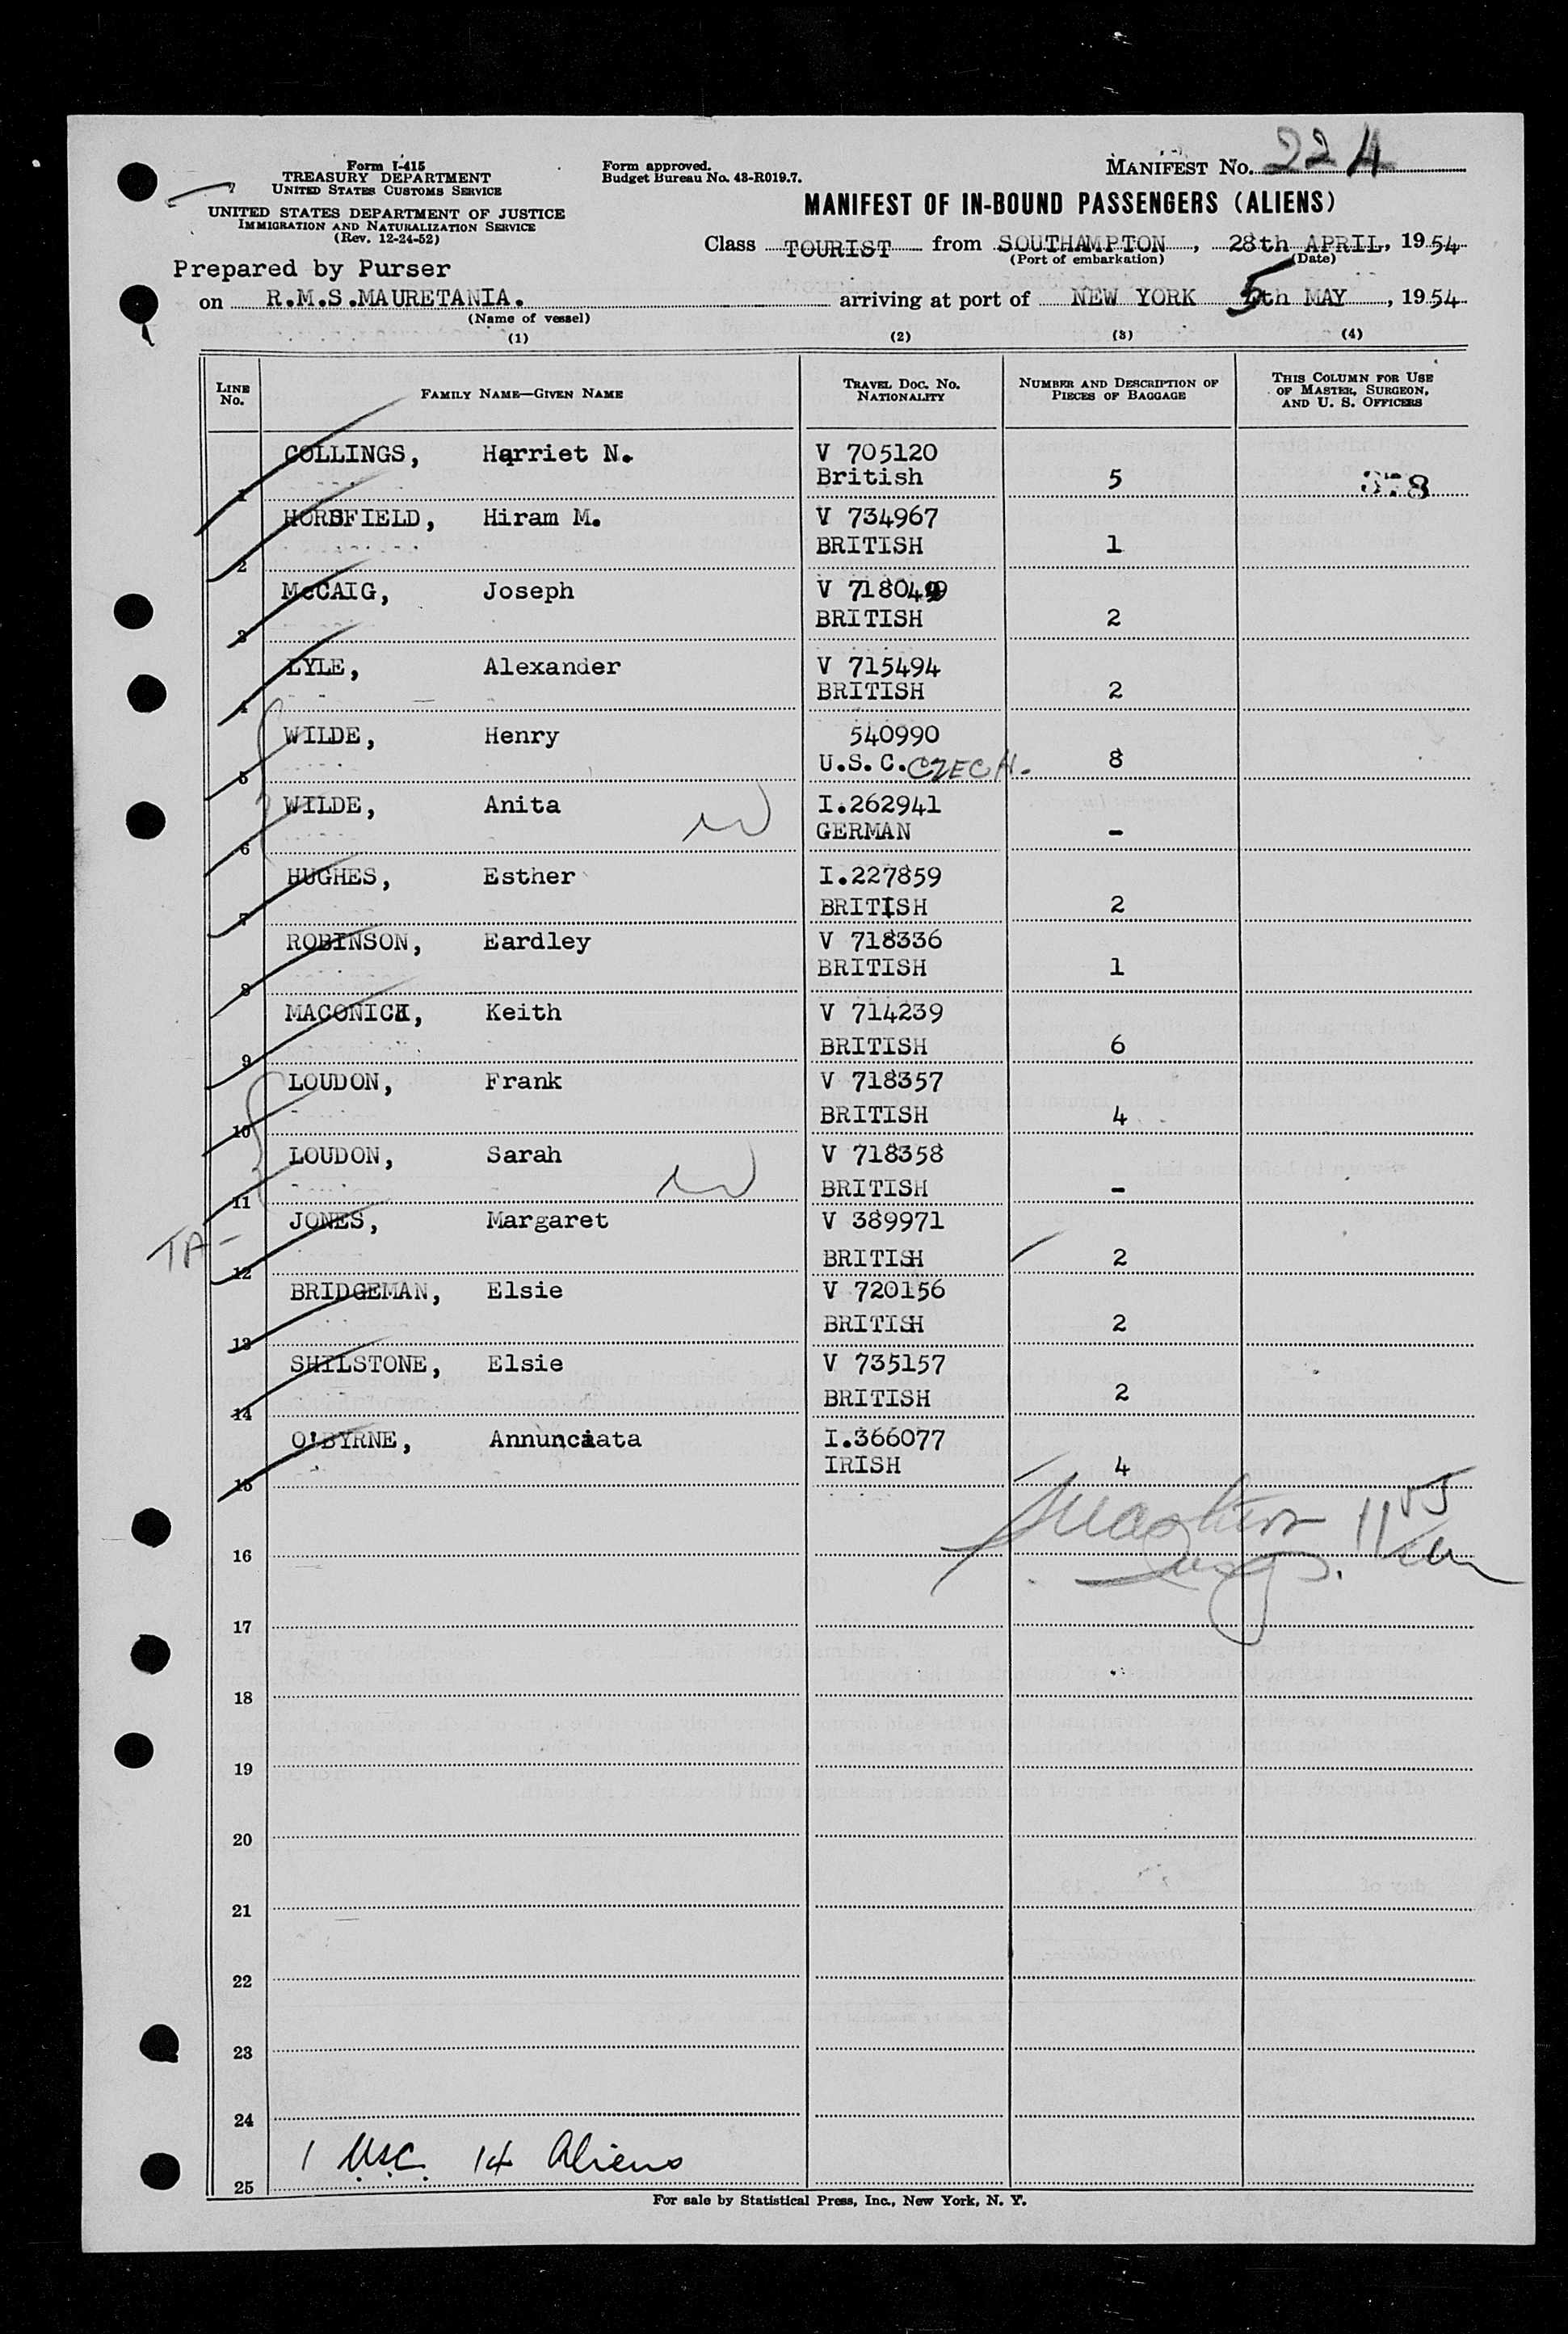 Form I-415
TREASURY DEPARTMENT
UNITED STATES CUSTOMS SERVICE
UNITED STATES DEPARTMENT OF JUSTICE
IMMIGRATION AND NATURALIZATION SERVICE
(Rev. 12-24-52)
Form approved.
Budget Bureau No. 43-R019.7.
MANIFEST No. 22 4
MANIFEST OF IN-BOUND PASSENGERS (ALIENS)
Class TOURIST from SOUTHAMPTON, 28th APRIL, 1954
(Port of embarkation) (Date)
Prepared by Purser
on R.M.S.MAURETANIA. arriving at port of NEW YORK 5th MAY, 1954
(Name of vessel)
(1) (2) (3) (4)
LINE No. FAMILY NAME—GIVEN NAME TRAVEL DOC. No. NATIONALITY NUMBER AND DESCRIPTION OF PIECES OF BAGGAGE THIS COLUMN FOR USE OF MASTER, SURGEON, AND U. S. OFFICERS
COLLINGS, Harriet N. V 705120
1 British 5
HORSFIELD, Hiram M. V 734967
2 BRITISH 1
McCAIG, Joseph V 718049
3 BRITISH 2
LYLE, Alexander V 715494
4 BRITISH 2
WILDE, Henry 540990
5 U.S.C. CZECH. 8
WILDE, Anita I.262941
6 GERMAN -
HUGHES, Esther I.227859
7 BRITISH 2
ROBINSON, Eardley V 718336
8 BRITISH 1
Keith V 714239
9 BRITISH 6
LOUDON, Frank V 718357
10 BRITISH 4
LOUDON, Sarah V 718358
11 BRITISH -
JONES, Margaret V 389971
TA-
12 BRITISH 2
BRIDGEMAN, Elsie V 720156
13 BRITISH 2
SHILSTONE, Elsie V 735157
14 BRITISH 2
O'BYRNE, Annunciata I.366077
15 IRISH 4
16
17
18
19
20
21
22
23
24
1 U.S.C. 14 Aliens
25
For sale by Statistical Press, Inc., New York, N. Y.